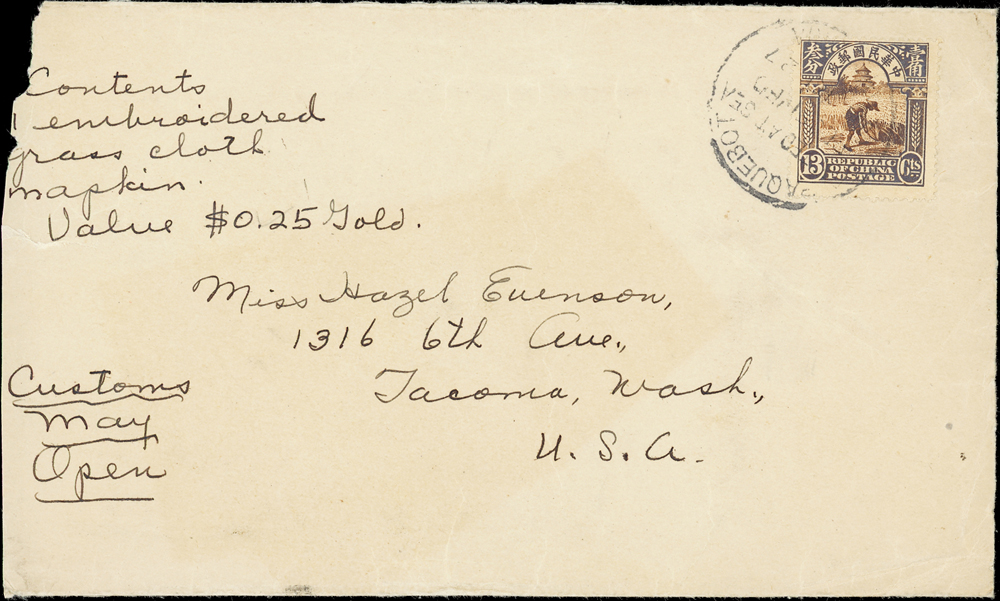 Contents
1 embroidered
grass cloth
napkin.
Value $0.25 Gold.
Miss Hazel Evenson,
1316 6th Ave.,
Tacoma, Wash.,
U. S. A.
Customs
May
Open
27
POSTED AT SEA
中華民國郵政
壹角
叁分
13 Cts
REPUBLIC
OF CHINA
POSTAGE